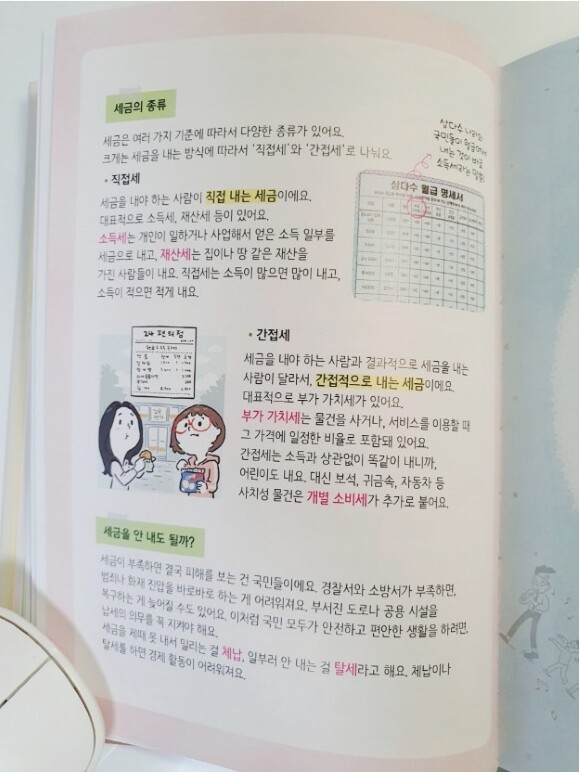 세금의 종류
세금은 여러 가지 기준에 따라서 다양한 종류가 있어요.
크게는 세금을 내는 방식에 따라서 '직접세'와 '간접세'로 나눠요.
삼다수 나라는
국민들이 월급에서
내는 것이 바로
소득세라는 말씀!
• 직접세
세금을 내야 하는 사람이 직접 내는 세금이에요.
대표적으로 소득세, 재산세 등이 있어요.
소득세는 개인이 일하거나 사업해서 얻은 소득 일부를
세금으로 내고, 재산세는 집이나 땅 같은 재산을
가진 사람들이 내요. 직접세는 소득이 많으면 많이 내고,
소득이 적으면 적게 내요.
삼다수 월급 명세서
24 편의점
• 간접세
세금을 내야 하는 사람과 결과적으로 세금을 내는
사람이 달라서, 간접적으로 내는 세금이에요.
대표적으로 부가 가치세가 있어요.
부가 가치세는 물건을 사거나, 서비스를 이용할 때
그 가격에 일정한 비율로 포함돼 있어요.
간접세는 소득과 상관없이 똑같이 내니까,
어린이도 내요. 대신 보석, 귀금속, 자동차 등
사치성 물건은 개별 소비세가 추가로 붙어요.
세금을 안 내도 될까?
세금이 부족하면 결국 피해를 보는 건 국민들이에요. 경찰서와 소방서가 부족하면,
범죄나 화재 진압을 바로바로 하는 게 어려워져요. 부서진 도로나 공용 시설을
복구하는 게 늦어질 수도 있어요. 이처럼 국민 모두가 안전하고 편안한 생활을 하려면,
납세의 의무를 꼭 지켜야 해요.
세금을 제때 못 내서 밀리는 걸 체납, 일부러 안 내는 걸 탈세라고 해요. 체납이나
탈세를 하면 경제 활동이 어려워져요.